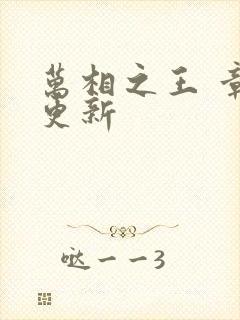 萬相之王 章
更新
哒一一3